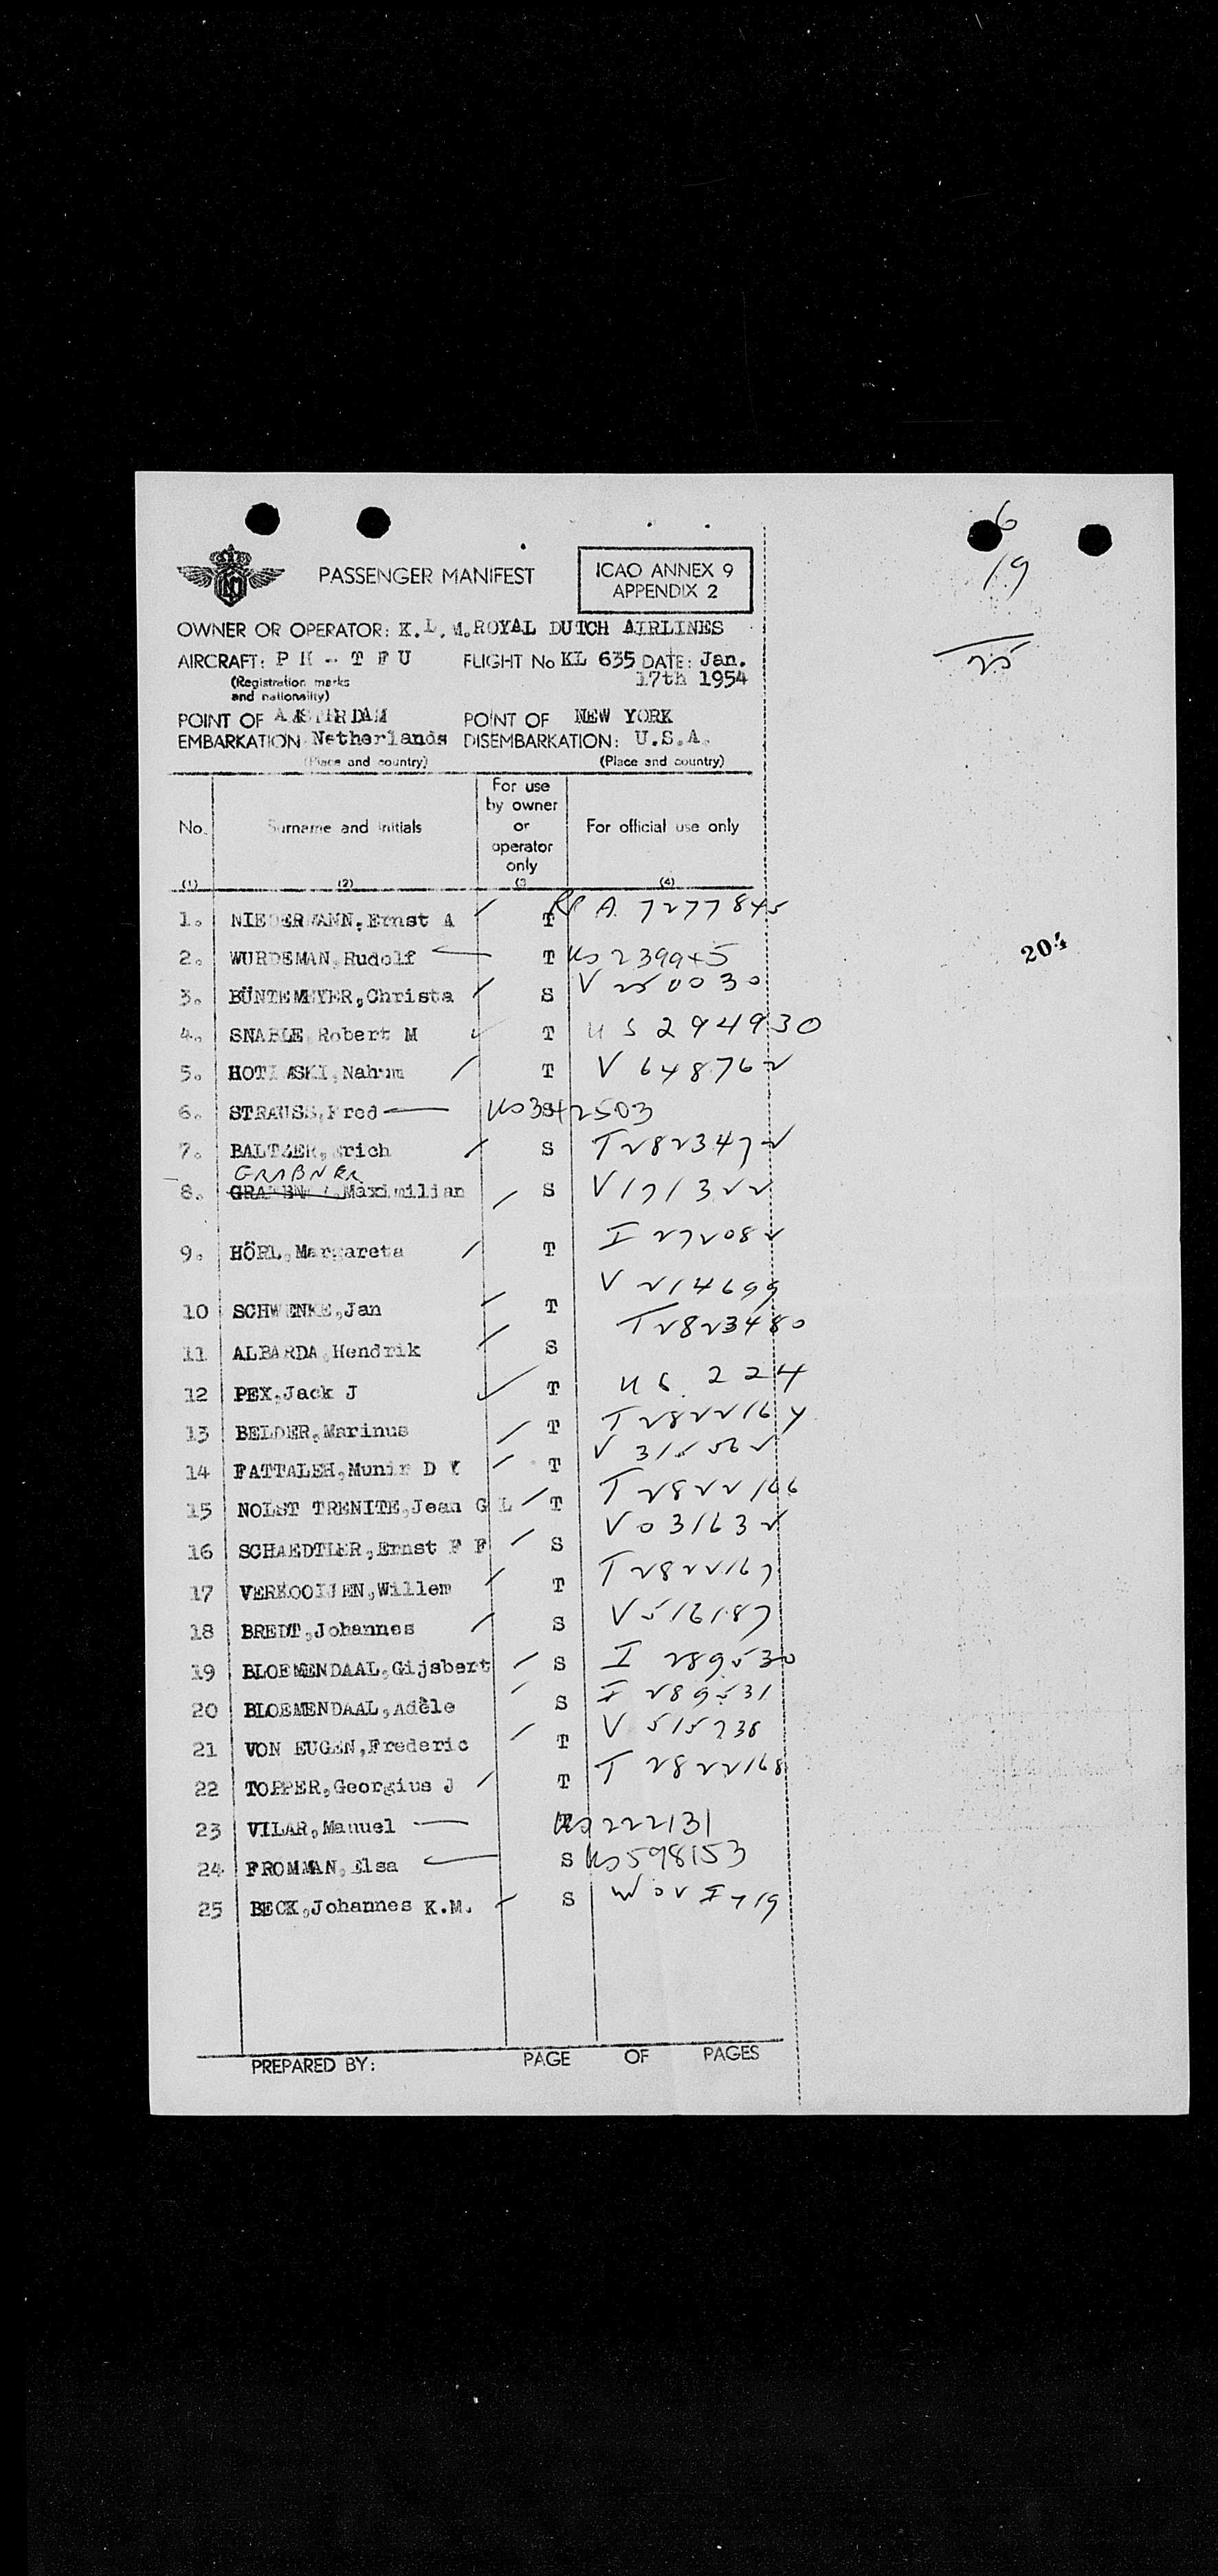 6
19
25
PASSENGER MANIFEST
ICAO ANNEX 9
APPENDIX 2
OWNER OR OPERATOR: K.L.M.ROYAL DUTCH AIRLINES
AIRCRAFT: P H - T F U FLIGHT No KL 635 DATE: Jan.
17th 1954
(Registration marks
and nationality)
POINT OF AMSTERDAM POINT OF NEW YORK
EMBARKATION Netherlands DISEMBARKATION: U.S.A.
(Place and country) (Place and country)
No. Surname and initials For use by owner or operator only For official use only
(1) (2) (3 (4)
1. NIEDERMANN,Ernst A T A 7277845
2. WURDEMAN,Rudolf T US 239945
204
3. BÜNTEMEYER,Christa S V 250030
4. SNABLE,Robert M T US 294930
5. HOTIMSKI,Nahum T V 648762
6. STRAUSS,Fred S US342503
7. BALTZER,Erich S T2823472
GRABNER
8. Maximilian S V171322
9. HÖRL,Margareta T I 272082
10 SCHWENKE,Jan T V 214699
11 ALBARDA,Hendrik S T2823480
12 PEX,Jack J T US 224
13 BELDER,Marinus T T282216
14 FATTALEH,Munir D Y T V
15 NOLST TRENITE,Jean G L T T2822166
16 SCHAEDTLER,Ernst F F S V031632
17 VERKOOIJEN,Willem T T2822167
18 BREDT,Johannes S V516187
19 BLOEMENDAAL,Gijsbert S I 289530
20 BLOEMENDAAL,Adèle S I 289531
21 VON EUGEN,Frederic T V 515738
22 TOPPER,Georgius J T T 2822168
23 VILAR,Manuel T US222131
24 FROMMAN,Elsa S US598153
25 BECK,Johannes K.M. S
PREPARED BY: PAGE OF PAGES